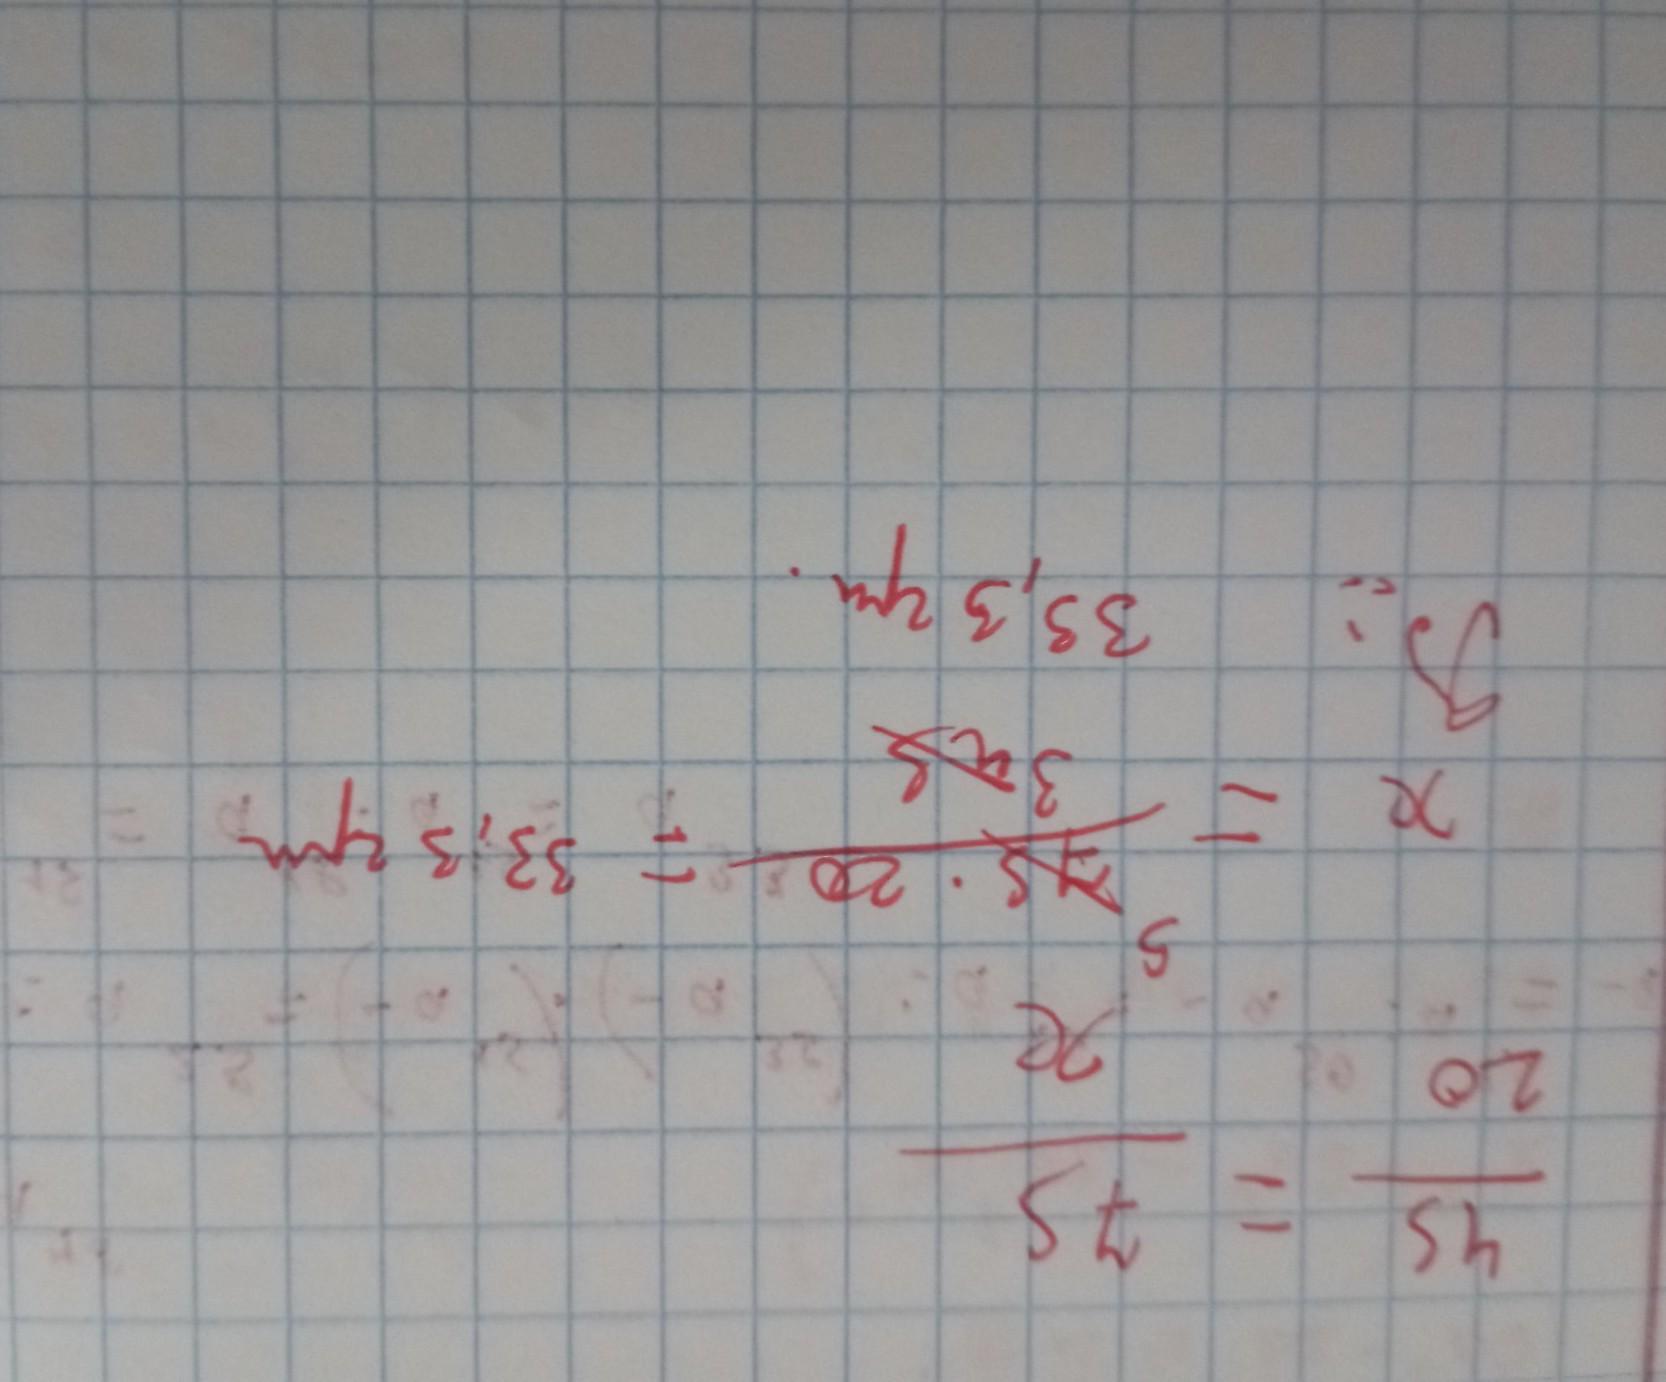 45/20 = 75/x
x = 5 75 · 20 / 3 45 = 33,3
33,3